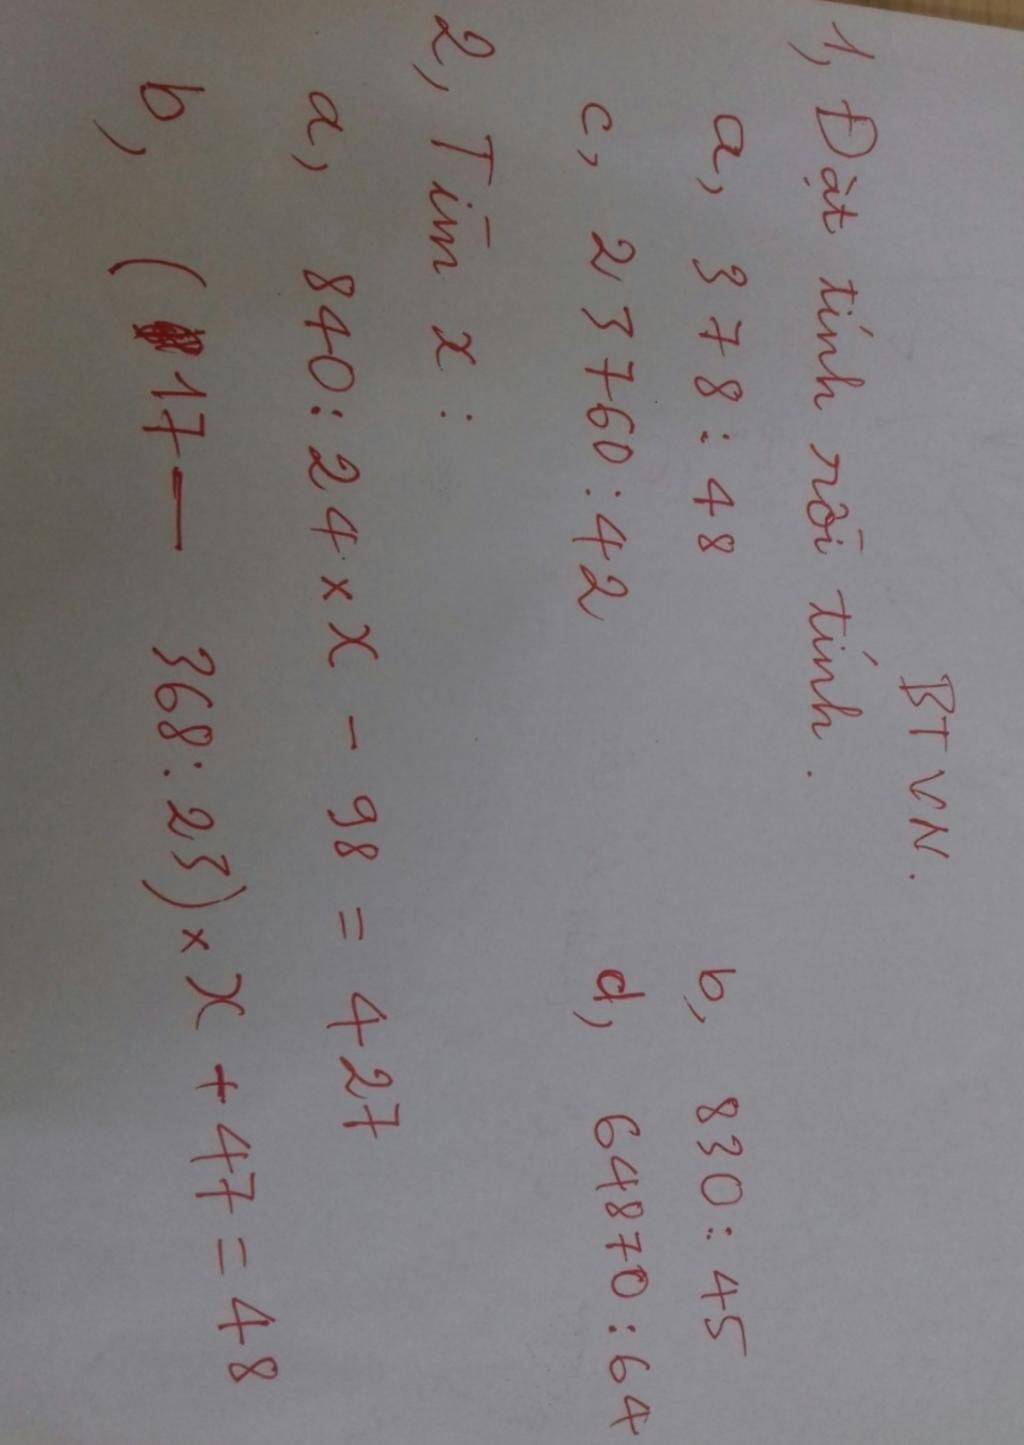 BTVN.
1, Đặt tính rồi tính.
a, 378 : 48 b, 830 : 45
c, 23760 : 42 d, 64870 : 64
2, Tìm x :
a, 840 : 24 × x - 98 = 427
b, (17 - 368 : 23) × x + 47 = 48